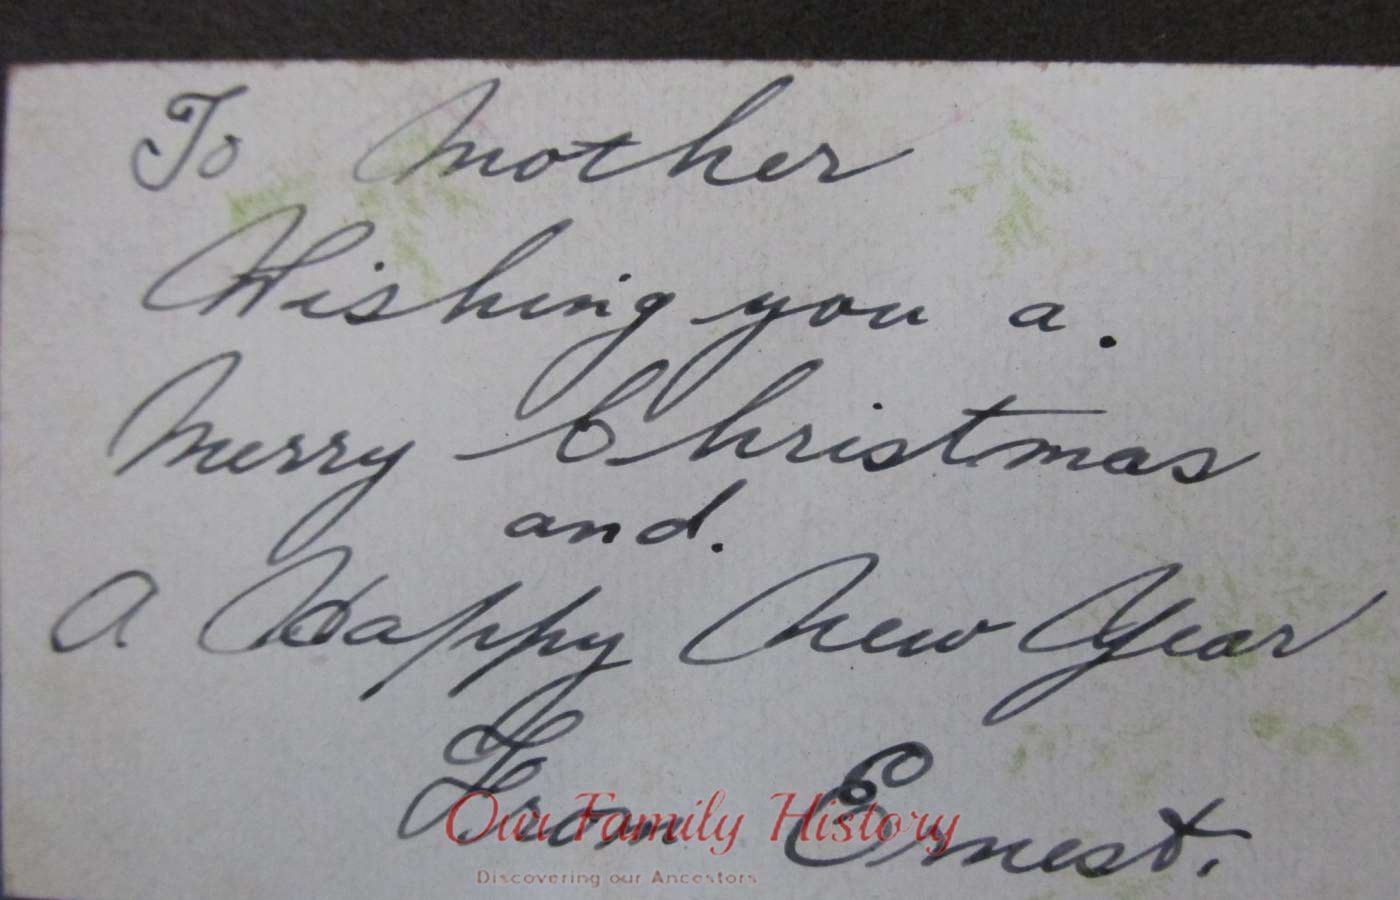 To Mother
Wishing you a.
Merry Christmas
and.
A Happy New Year
From Ernest.
Our Family History
Discovering our Ancestors